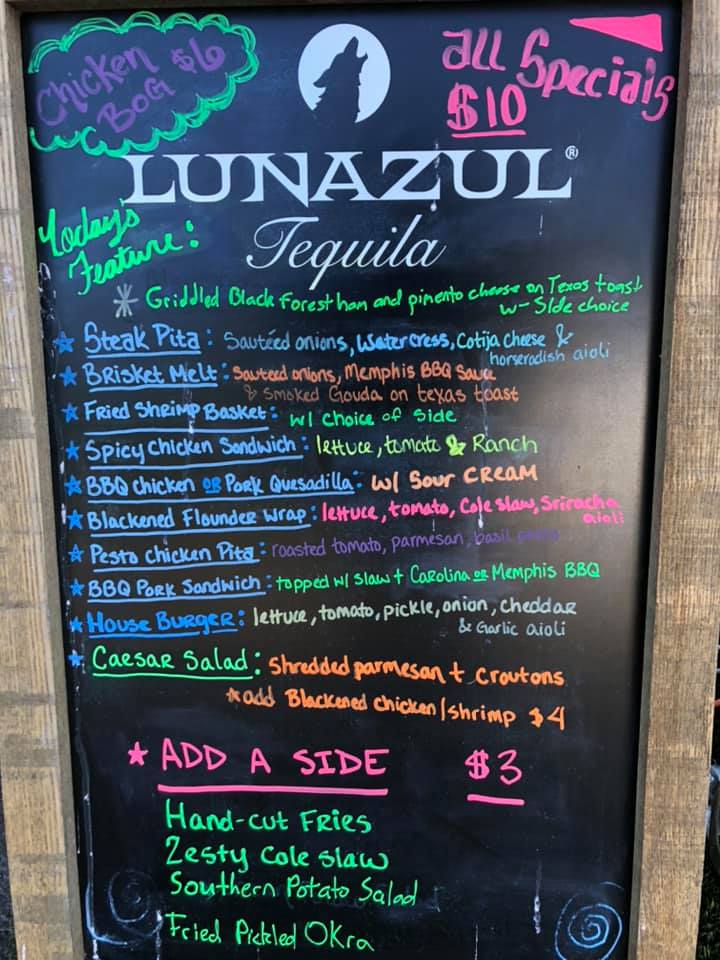 Chicken BOG $6
all Specials
$10
LUNAZUL®
Tequila
Today's Feature:
Griddled Black Forest ham and pimento cheese on Texas toast
w- Side choice
Steak Pita: Sautéed onions, Watercress, Cotija cheese &
horseradish aioli
Brisket Melt: Sauteed onions, Memphis BBQ Sauce
& Smoked Gouda on texas toast
Fried Shrimp Basket: w/ choice of side
Spicy Chicken Sandwich: lettuce, tomato & Ranch
BBQ chicken OR Pork Quesadilla: w/ Sour CREAM
Blackened Flounder Wrap: lettuce, tomato, Cole slaw, Sriracha
aioli
Pesto chicken Pita: roasted tomato, parmesan, basil
BBQ Pork Sandwich: topped w/ slaw + Carolina OR Memphis BBQ
House Burger: lettuce, tomato, pickle, onion, cheddar
& Garlic aioli
Caesar Salad: Shredded parmesan + Croutons
*add Blackened chicken/shrimp $4
* ADD A SIDE $3
Hand-cut Fries
Zesty Cole slaw
Southern Potato Salad
Fried Pickled OKra